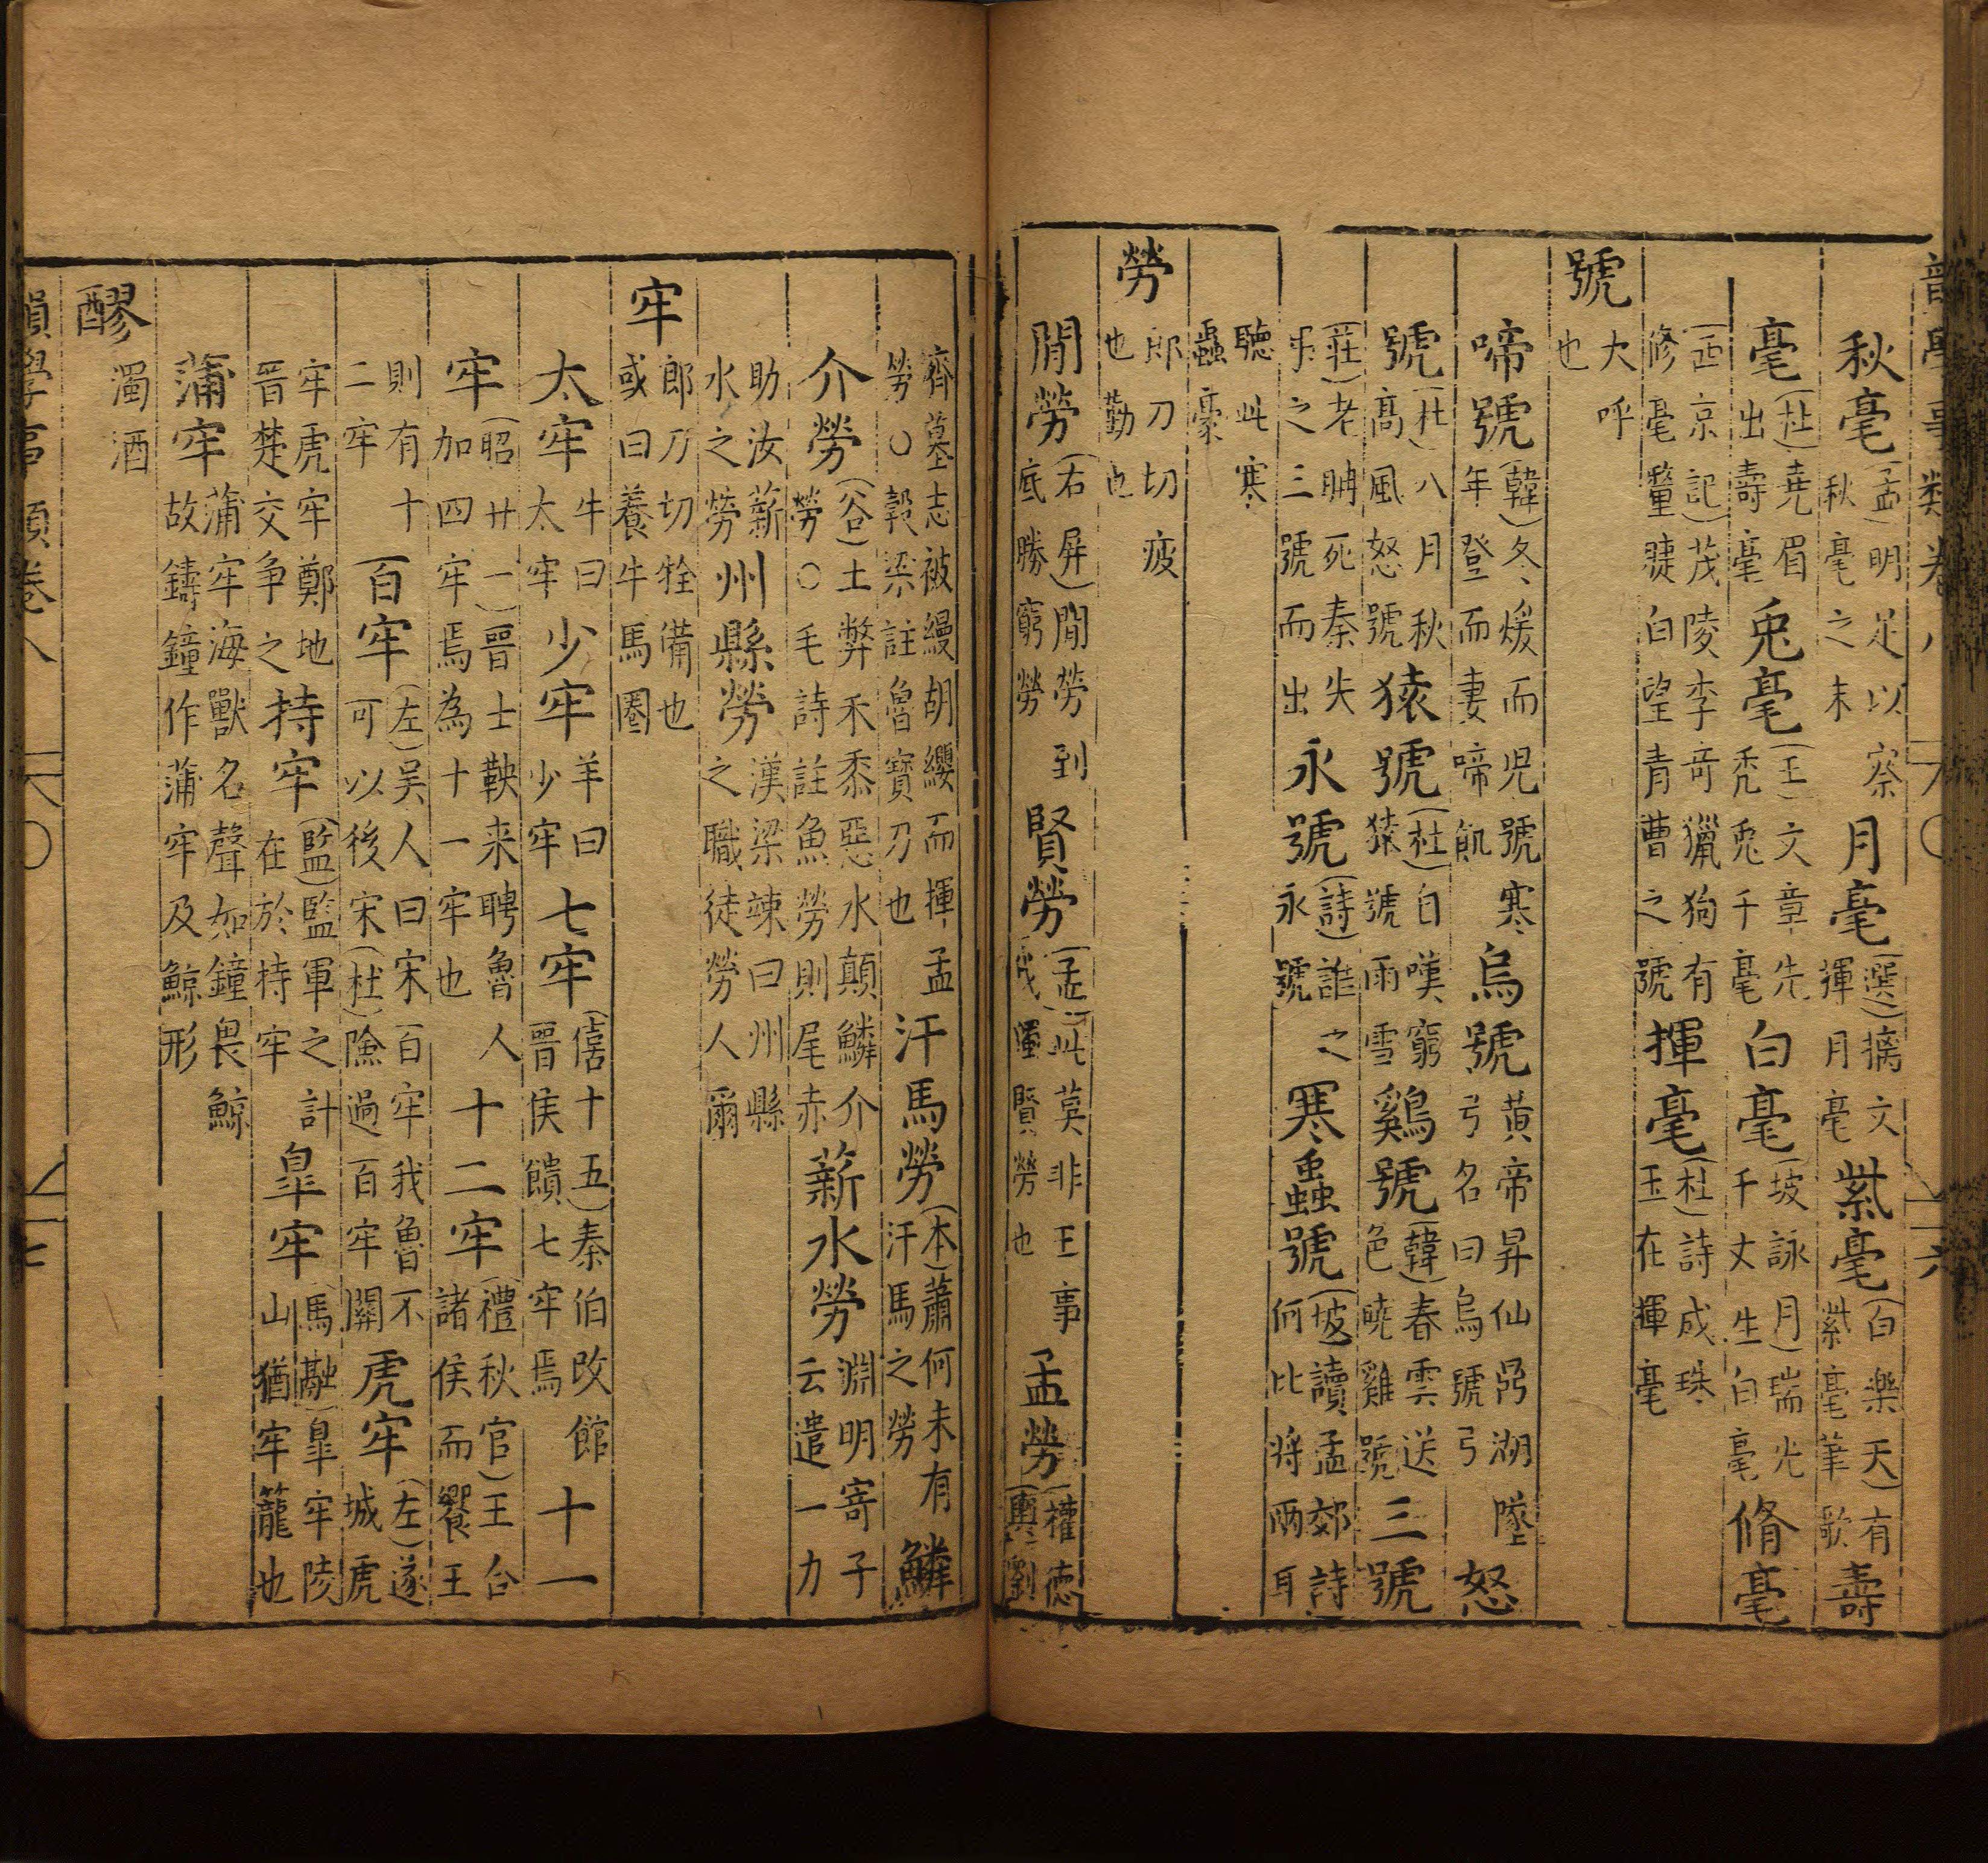 秋毫(孟)明足以察秋毫之末 月毫(選)摛文揮月毫 紫毫(白樂天)有紫毫筆歌 壽
毫(杜)堯眉出壽毫 兎毫(王)文章先禿兎千毫 白毫(坡詠月)瑞光千丈生白毫 脩毫
(西京記)茂陵李奇獵狗有修毫氂睫白望青曹之號 揮毫(杜)詩成珠玉在揮毫
號 大呼也
啼號(韓)冬煖而児號寒年登而妻啼飢 烏號黃帝昇仙鼎湖墜弓名曰烏號弓 怒
號(杜)八月秋髙風怒號 猿號(杜)白嘆窮猿號雨雪 鷄號(韓)春雲送色曉雞號 三號
(莊)老耼死秦失弔之三號而出 永號(詩)誰之永號 寒蟲號(坡)讀孟郊詩何比將兩耳
聽此寒蟲豪
勞 郎刀切疲也勤也
閒勞(右屏)閒勞到底勝窮勞 賢勞(孟)此莫非王事我獨賢勞也 孟勞(權德輿劉
濟墓志被縵胡纓而揮孟勞○穀梁註魯寶刀也 汗馬勞(本)蕭何未有汗馬之勞 鱗
介勞(谷)土弊禾黍惡水顛鱗介勞○毛詩註魚勞則尾赤 薪水勞淵明寄子云遣一力
助汝薪水之勞 州縣勞漢梁竦曰州縣之職徒勞人爾
牢 郎刀切牲備也或曰養牛馬圈
太牢牛曰太牢 少牢羊曰少牢 七牢(僖十五)秦伯改館晉侯饋七牢焉 十一
牢(昭廿一)晉士鞅来聘魯人加四牢焉為十一牢也 十二牢(禮秋官)王合諸侯而饗王
則有十二牢 百牢(左)吳人曰宋百牢我魯不可以後宋(杜)險過百牢關 虎牢(左)遂城虎
牢虎牢鄭地晉楚交争之 持牢(監)監軍之計在於持牢 皐牢(馬融)皐牢陵山猶牢籠也
蒲牢蒲牢海獸名聲如鐘畏鯨故鑄鐘作蒲牢及鯨形
醪 濁酒